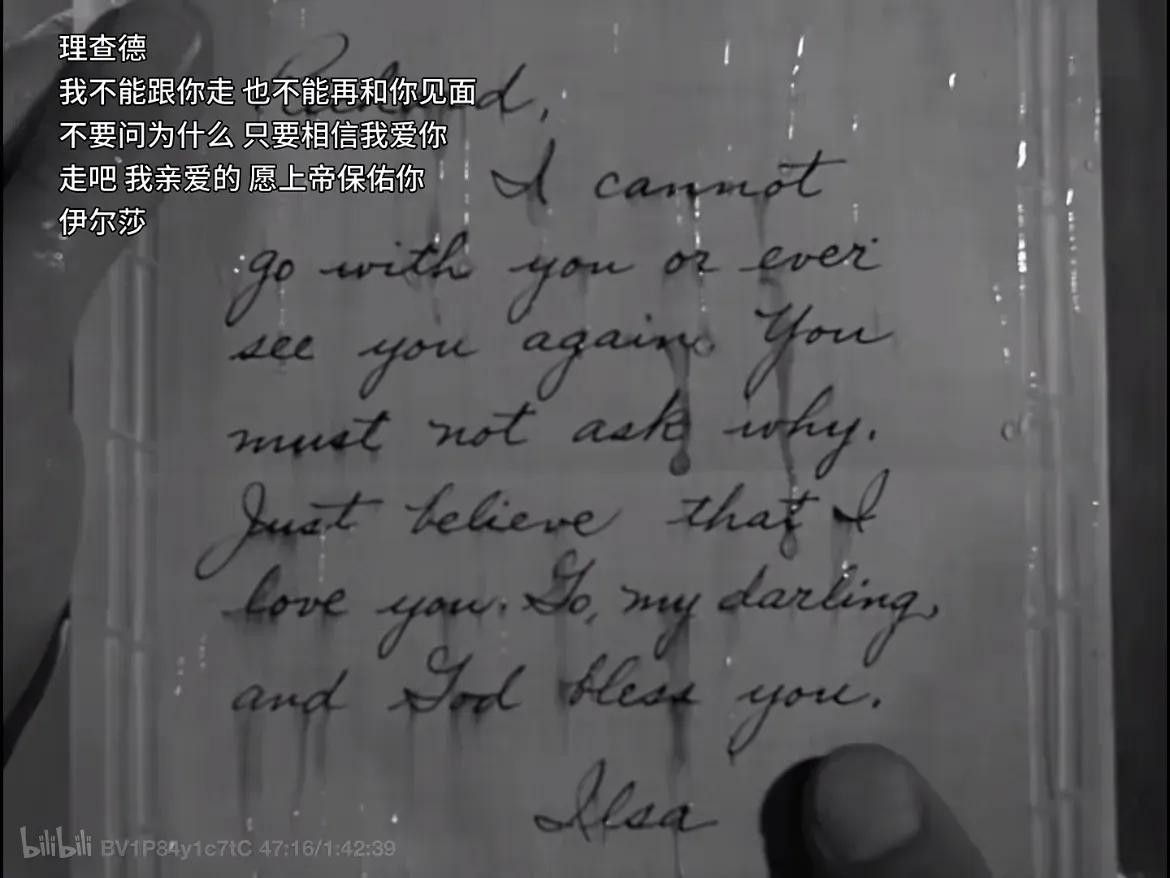 理查德
我不能跟你走 也不能再和你见面
不要问为什么 只要相信我爱你
走吧 我亲爱的 愿上帝保佑你
伊尔莎
Richard,
I cannot
go with you or ever
see you again. You
must not ask why.
Just believe that I
love you. Go, my darling,
and God bless you.
Ilsa
bilibili BV1P84y1c7tC 47:16/1:42:39